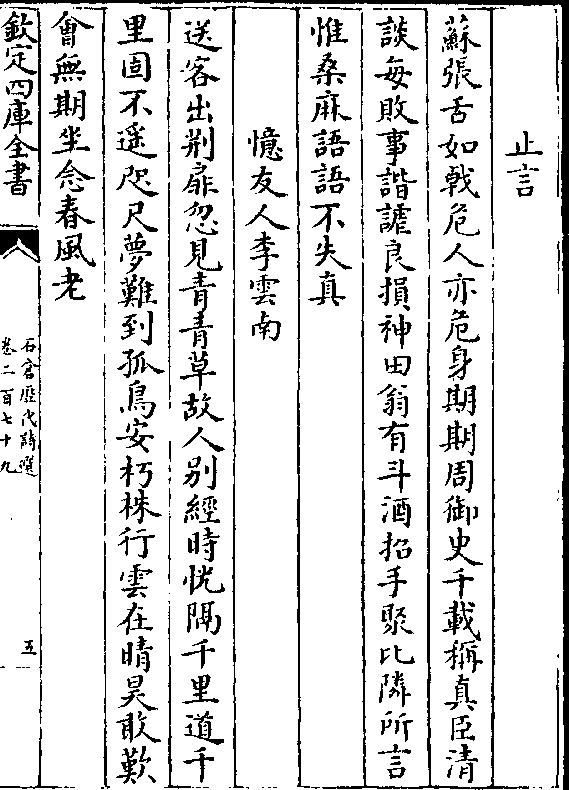 止言
蘇張舌如戟危人亦危身期期周御史千載稱真臣清
談每敗事諧謔良損神田翁有斗酒招手聚比隣所言
惟桑麻語語不失真
憶友人李雲南
送客出荆扉忽見青青草故人别經時恍隔千里道千
里固不遥咫尺夢難到孤鳥安朽株行雲在晴昊敢歎
會無期坐念春風老
欽定四庫全書
石倉歴代詩選
卷二百七十九
五